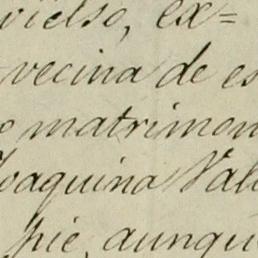 vielso, ex=
vecina de es
o matrimon
Joaquina Val
pie, aunqu